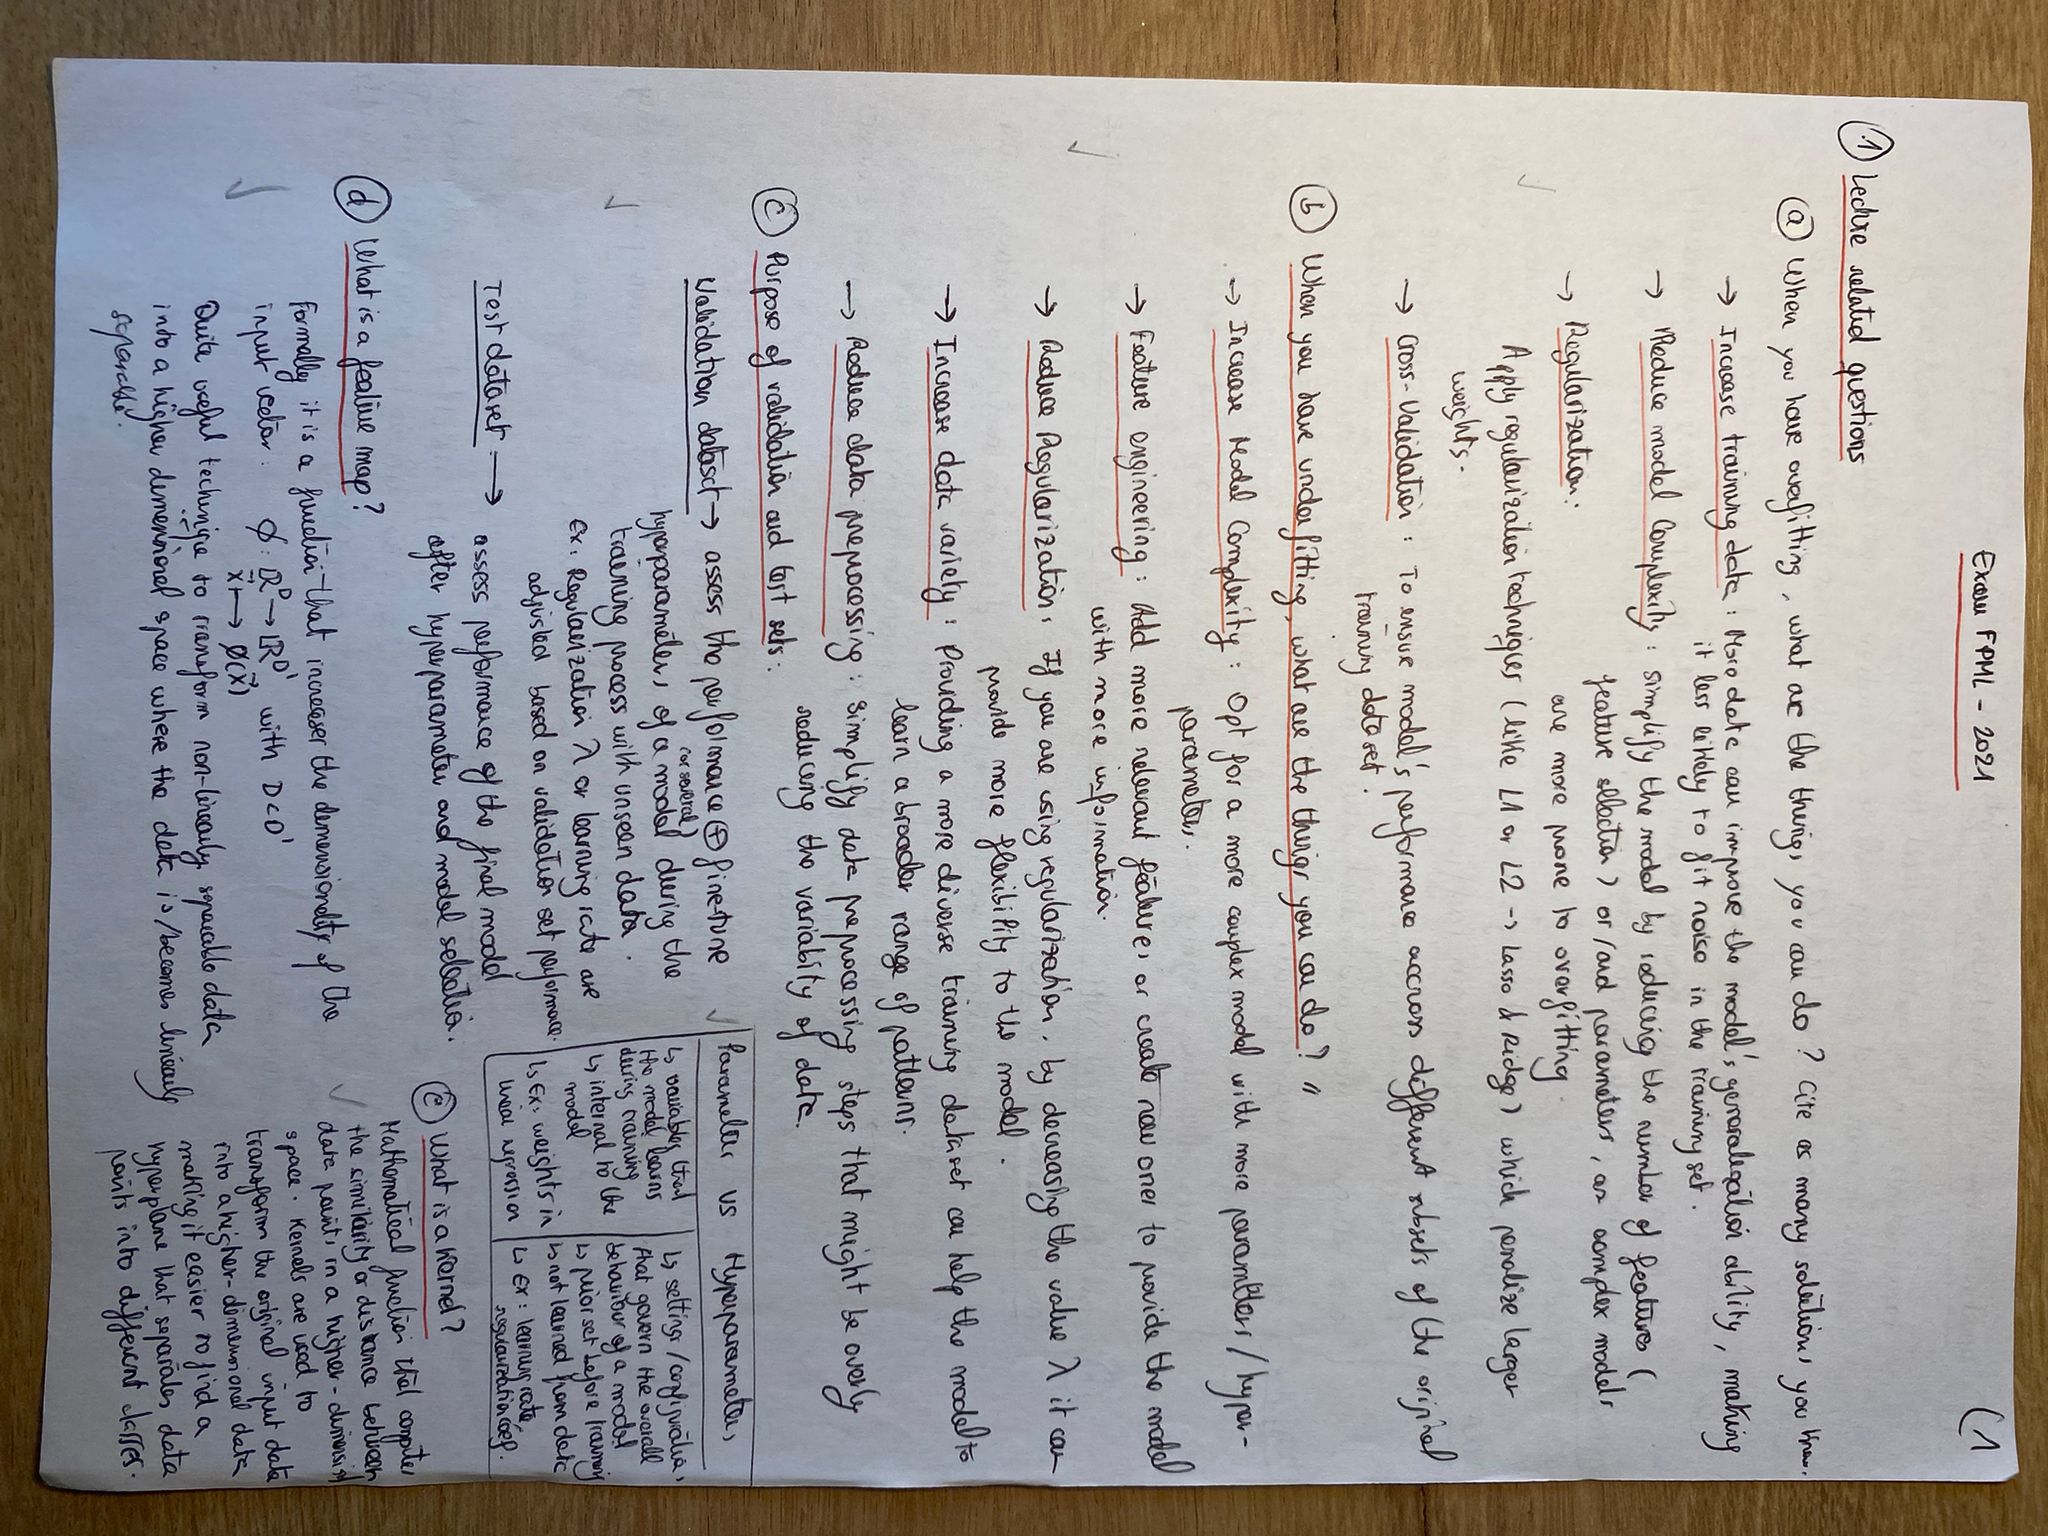 Exam FPML - 2021
(1
1 Lecture related questions
a When you have overfitting, what are the things you can do? Cite as many solutions you know.
→ Increase training data: More data can improve the model's generalization ability, making
it less likely to fit noise in the training set.
→ Reduce model Complexity: simplify the model by reducing the number of features (
feature selection) or/and parameters, as complex models
are more prone to overfitting.
→ Regularization:
Apply regularization techniques (like L1 or L2 → Lasso & Ridge) which penalize larger
weights.
→ Cross-Validation: To ensure model's performance accross different subsets of the original
training dataset.
b When you have underfitting, what are the things you can do? "
→ Increase Model Complexity: Opt for a more complex model with more parameters/hyper-
parameters.
→ Feature engineering: Add more relevant features or create new ones to provide the model
with more information.
→ Reduce Regularization: If you are using regularization, by decreasing the value λ it can
provide more flexibility to the model.
→ Increase data variety: Providing a more diverse training dataset can help the model to
learn a broader range of patterns.
→ Reduce data preprocessing: Simplify data preprocessing steps that might be overly
reducing the variability of data.
c Purpose of validation and test sets:
Validation dataset → assess the performance ⊕ fine-tune
hyperparameters of a (or several) model during the
training process with unseen data.
Ex: Regularization λ or learning rate are
adjusted based on validation set performance.
Test dataset: → assess performance of the final model
after hyperparameter and model selection.
Parameters vs Hyperparameters
↳ variables that
the model learns
during training
↳ internal to the
model
↳ Ex: weights in
linear regression
↳ settings/configurations
that govern the overall
behaviour of a model
↳ prior set before training
↳ not learned from data
↳ Ex: learning rate,
regularization coef.
d What is a feature map?
Formally it is a function that increases the dimensionality of the
input vector. ∅: ℝᴰ → ℝᴰ' with D<D'
x⃗ ↦ ∅(x⃗)
Quite useful technique to transform non-linearly separable data
into a higher dimensional space where the data is/becomes linearly
separable.
e What is a Kernel?
Mathematical function that computes
the similarity or distance between
data points in a higher-dimensional
space. Kernels are used to
transform the original input data
into a higher-dimensional data
making it easier to find a
hyperplane that separates data
points into different classes.